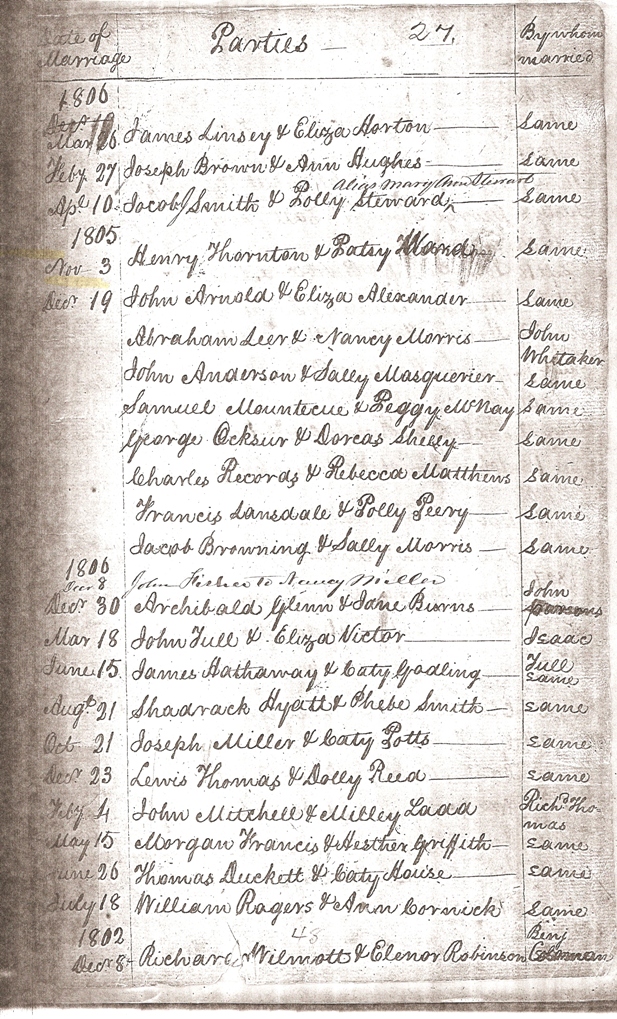 Date of Marriage Parties — 27. By whom married
1806
Mar 26 James Linsey & Eliza Horton — Same
Feby 27 Joseph Brown & Ann Hughes — Same
alias Mary Ann Stewart
Apl 10 Jacob J Smith & Polly Steward, ^ — Same
1805
Nov 3 Henry Thornton & Patsy Ward Same
Decr 19 John Arnold & Eliza Alexander — Same
Abraham Leer & Nancy Morris — John Whitaker
John Anderson & Sally Masquerier — Same
Samuel Mountecue & Peggy McNay Same
George Ocksur & Dorcas Shelly — Same
Charles Records & Rebecca Matthews Same
Francis Lansdale & Polly Peery — Same
Jacob Browning & Sally Morris — Same
1806
Decr 8 John Fisher to Nancy Miller
Decr 30 Archibald Glenn & Jane Burns — John Parsons
Mar 18 John Tull & Eliza Victor — Isaac Tull
June 15 James Hathaway & Caty Godling — same
Augt 21 Shadrack Hyatt & Phebe Smith — same
Oct 21 Joseph Miller & Caty Potts — same
Decr 23 Lewis Thomas & Dolly Reed — same
Feby 4 John Mitchell & Milley Ladd Richd Thomas
May 15 Morgan Francis & Hesther Griffith — same
June 26 Thomas Duckett & Caty House — same
July 18 William Rogers & Ann Cornick same
1802 48
Decr 8 — Richard Wilmott & Elenor Robinson Benj Coleman